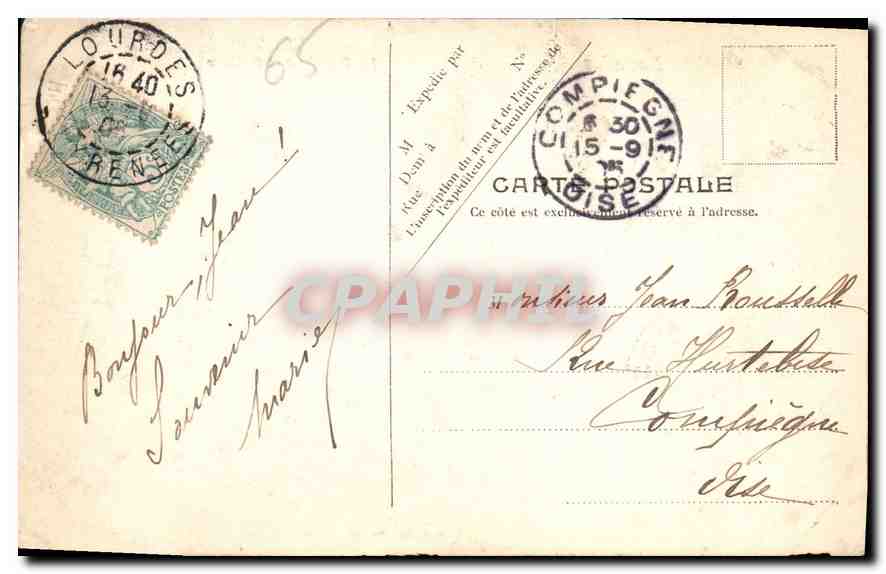 65
LOURDES
16 40
13
PYRENEES
POSTES
Bonjour, Jean!
Souvenir
Marie
Expédié par
M
Demt à
Rue
No
L'inscription du nom et de l'adresse de
l'expéditeur est facultative.
COMPIEGNE
6 30
15 -9
OISE
CARTE POSTALE
Ce côté est exclusivement réservé à l'adresse.
CPAPHIL
Monsieur Jean Rousselle
Rue Hurtebise
Compiègne
Oise